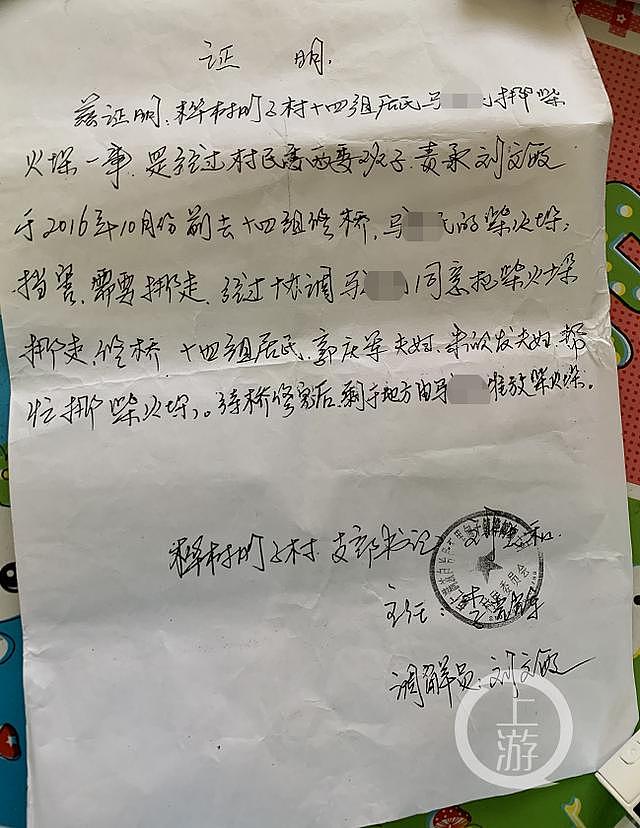 证 明
兹证明、桦树的子村十四组居民马 民挪柴
火垛一事、是经过村民委两委班子、责承刘文
于2016年10月份前去十四组修桥、马 民的柴火垛、
挡害、需要挪走、经过协调马 同意把柴火垛
挪走、修桥、十四组居民、郭庆军夫妇、 发夫妇、帮
忙挪柴火垛、。待桥修完后、剩于地方由马 堆放柴火垛。
桦树的子村 支部书记
委员会
主任：李
调解员：刘文
上游